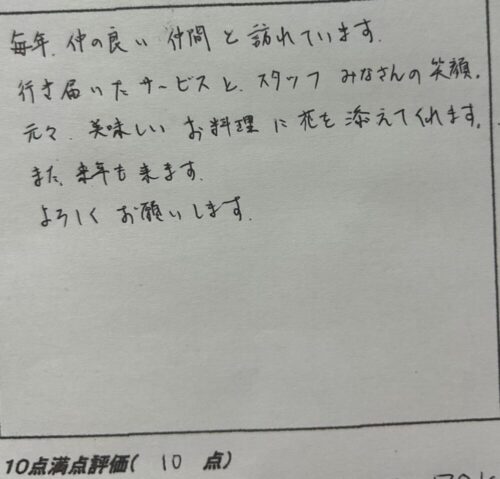 毎年、仲の良い仲間と訪れています。
行き届いたサービスと、スタッフみなさんの笑顔。
元々、美味しいお料理に花を添えてくれます。
また、来年も来ます。
よろしくお願いします。
10点満点評価( 10 点)